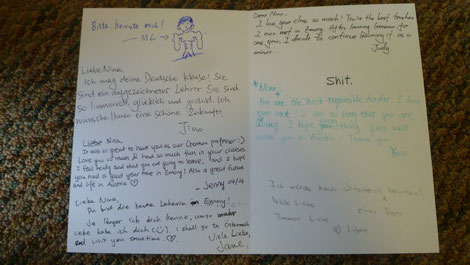 Bitte, heirate mich!
— ML
Liebe Nina,
Ich mag deine Deutsche Klasse! Sie
sind ein ausgezeichneter Lehrer. Sie sind
so humorvoll, glücklich und geduldig. Ich
wünsche Ihnen eine schöne Zukunft!
Jiao
Liebe Nina,
It was so great to have you as our German professor :)
Love you so much & had so much fun in your classes
I feel really sad that you are going to leave, and I hope
you had a good year here in Emory! Also a great future
and life in Austria
Jenny
Liebe Nina,
Du bist die beste Lehrerin in Emory!
Je länger ich dich kenne, umso
liebe habe ich dich I shall go to Österreich
and visit you sometime.
Viele Liebe,
Jane.
Dear Nina,
I love your class so much! You're the best teacher
I ever met in Emory. After learning German for
one year, I decide to continue following it as a
minor.
Judy
Shit.
Nina,
You are the most responsible teacher I have
ever met! I am so sorry that you are
leaving. I hope everything goes well
with you in Austria! Thank you!
Ich werde nach Österreich
Viele Liebe
Immer Liebe